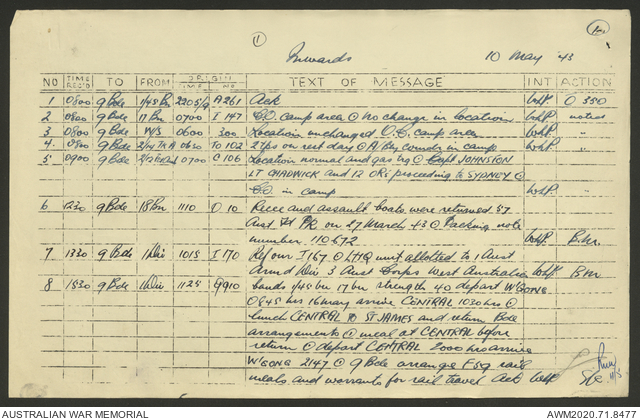 1
Inwards 10 May '43
NO TIME REC'D TO FROM ORIGIN TIME NO TEXT OF MESSAGE INT ACTION
1 0800 9 Bde 1/45 Bn 2205/9 A261 Ack WHP. O 350
2 0800 9 Bde 17 Bn 0700 I 147 C.O. camp area @ No change in location WHP. noted
3 0800 9 Bde 0600 300 Location unchanged O.C. camp area WHP. "
4 0800 9 Bde 0630 TO 102 2 Tps on rest day @ A Bty Comdr in camp WHP. "
5 0900 9 Bde 0700 C 106 Location normal and gas trg @ Capt JOHNSTON
LT CHADWICK and 12 ORs proceeding to SYDNEY @
C.O. in camp WHP. "
6 1230 9 Bde 18 Bn 1110 O 10 Recce and assault boats were returned 57
Aust PR on 27 March 43 @ Packing note
number. 110672 WHP. B.M.
7 1330 9 Bde 1 Div 1015 I 170 Ref our I 167 @ LHQ unit allotted to 1 Aust
Armd Div 3 Aust Corps West Australia WHP. BM
8 1530 9 Bde 1 Div 1125 G910 Bands 1/45 bn 17 bn strength 40 depart W'GONG
0845 hrs 16 May arrive CENTRAL 1030 hrs @
lunch CENTRAL to ST JAMES and return Bde
arrangements @ meal at CENTRAL before
return @ depart CENTRAL 2000 hrs arrive
W'GONG 2147 @ 9 Bde arrange F59 rail
meals and warrants for rail travel Ack WHP
AUSTRALIAN WAR MEMORIAL AWM2020.71.8477